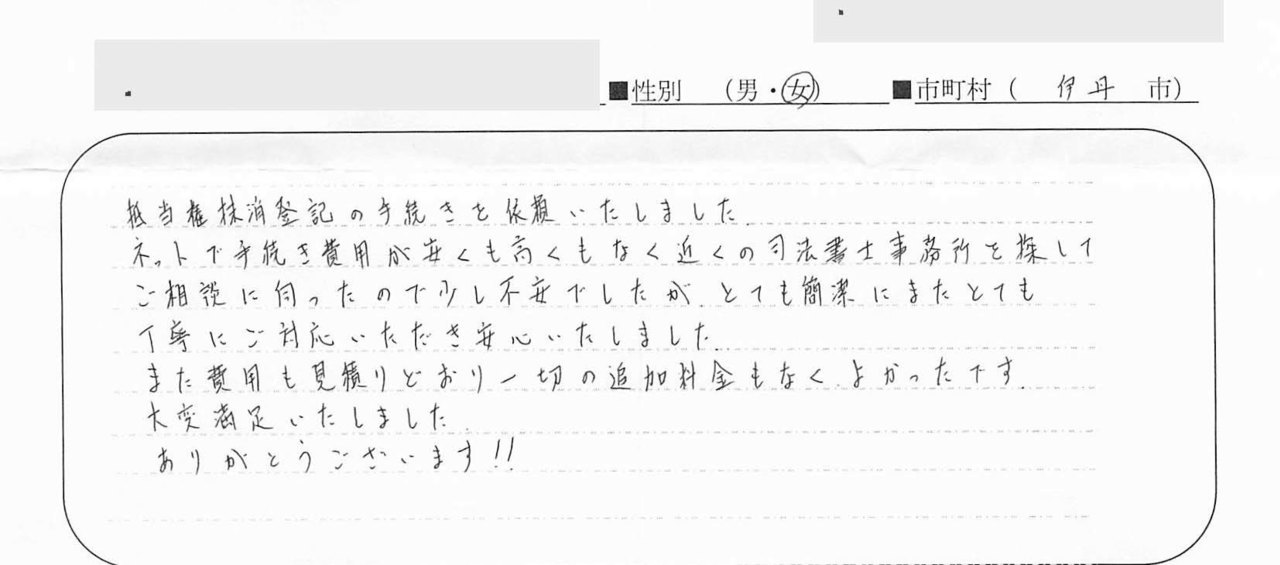 ■性別 （男・女） ■市町村（ 伊丹 市）
抵当権抹消登記の手続きを依頼いたしました。
ネットで手続き費用が安くも高くもなく近くの司法書士事務所を探して
ご相談に伺ったので少し不安でしたが、とても簡潔にまたとても
丁寧にご対応いただき安心いたしました。
また費用も見積りどおり一切の追加料金もなく、よかったです。
大変満足いたしました。
ありがとうございます!!